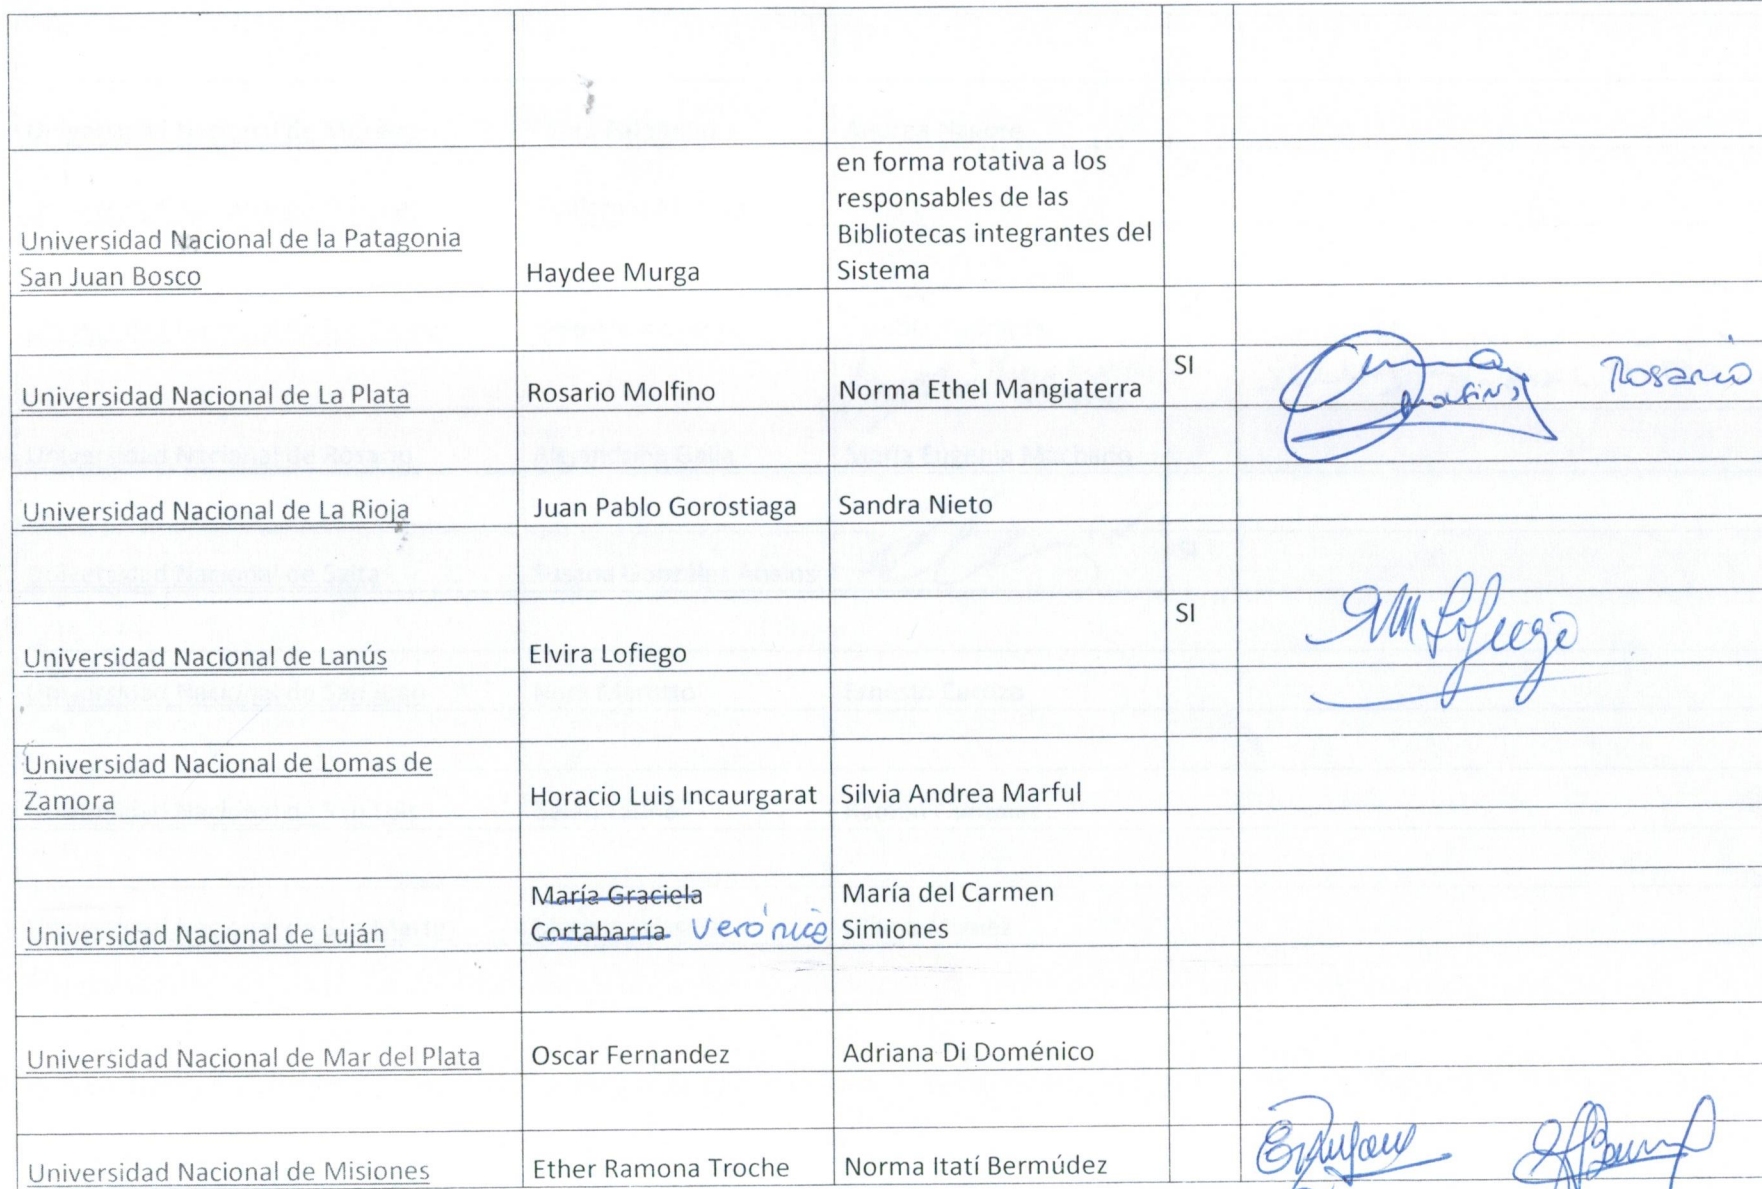 en forma rotativa a los
responsables de las
Bibliotecas integrantes del
Sistema
Universidad Nacional de la Patagonia
San Juan Bosco
Haydee Murga
Universidad Nacional de La Plata
Rosario Molfino
Norma Ethel Mangiaterra
SI
Molfino
Rosario
Universidad Nacional de La Rioja
Juan Pablo Gorostiaga
Sandra Nieto
Universidad Nacional de Lanús
Elvira Lofiego
SI
Lofiego
Universidad Nacional de Lomas de
Zamora
Horacio Luis Incaurgarat
Silvia Andrea Marful
Universidad Nacional de Luján
María Graciela
Cortabarría Verónica
María del Carmen
Simiones
Universidad Nacional de Mar del Plata
Oscar Fernandez
Adriana Di Doménico
Universidad Nacional de Misiones
Ether Ramona Troche
Norma Itatí Bermúdez